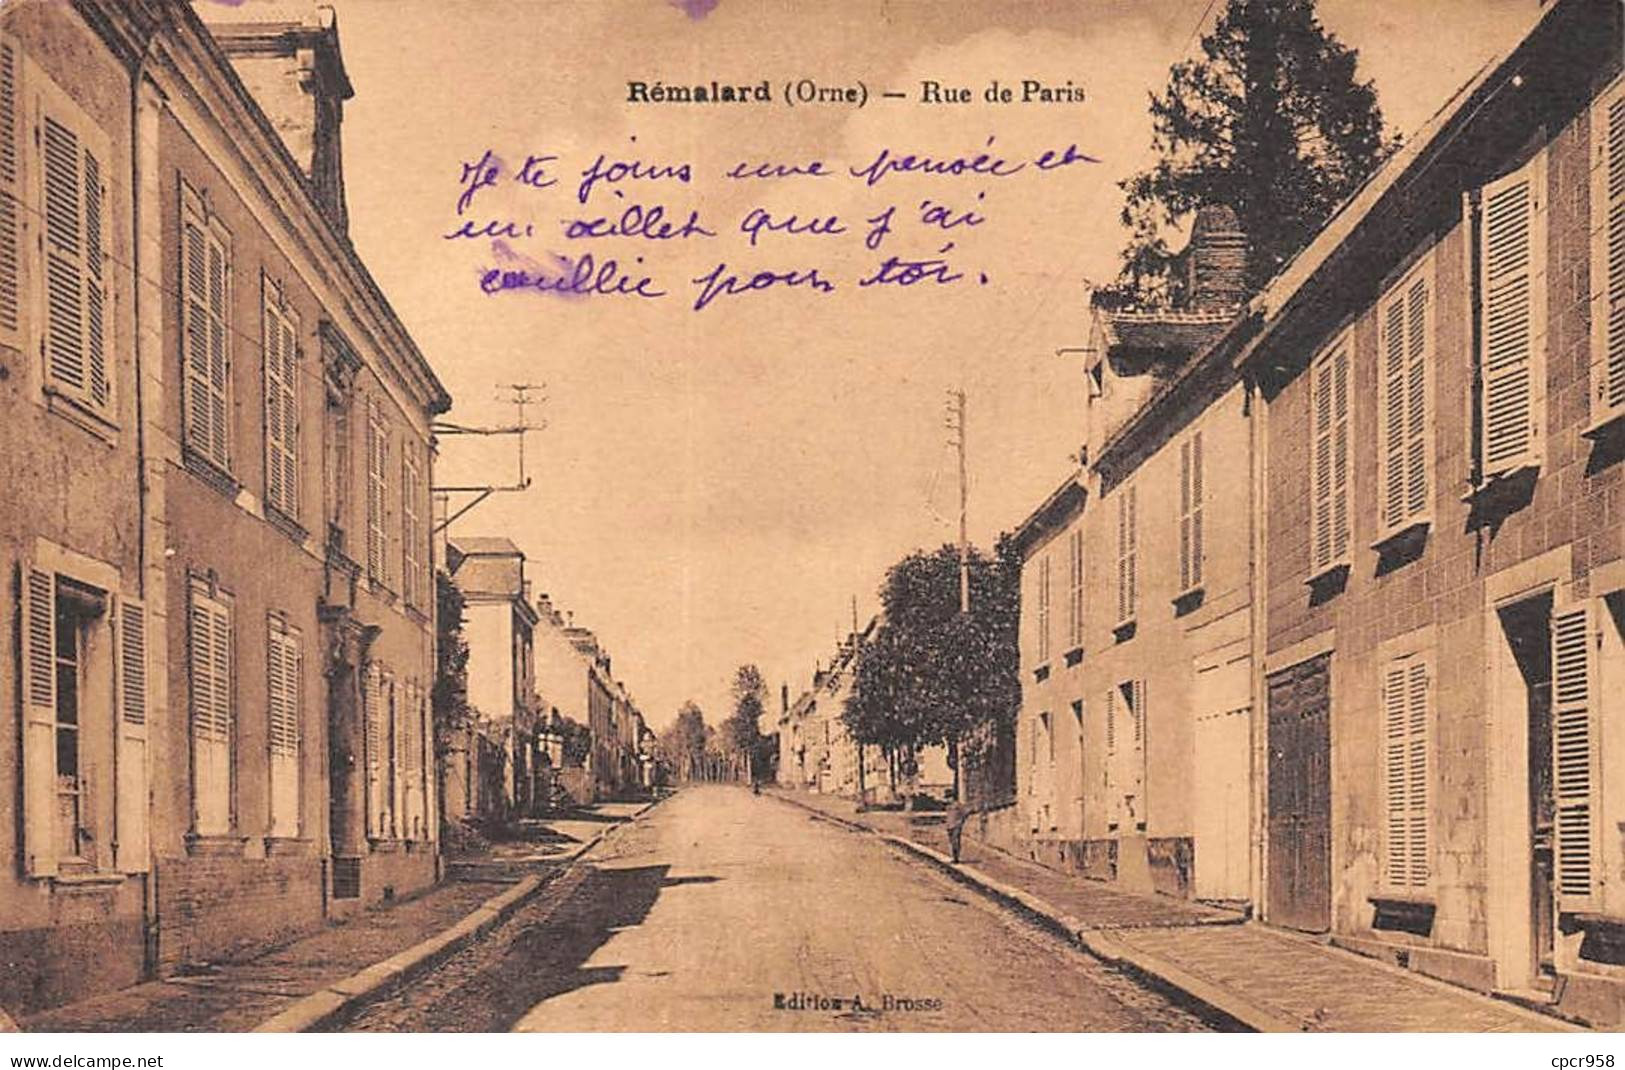 Rémalard (Orne) — Rue de Paris
Je te joins une pensée et
un œillet que j'ai
cueillie pour toi.
Edition A. Brosse
www.delcampe.net
cpcr958